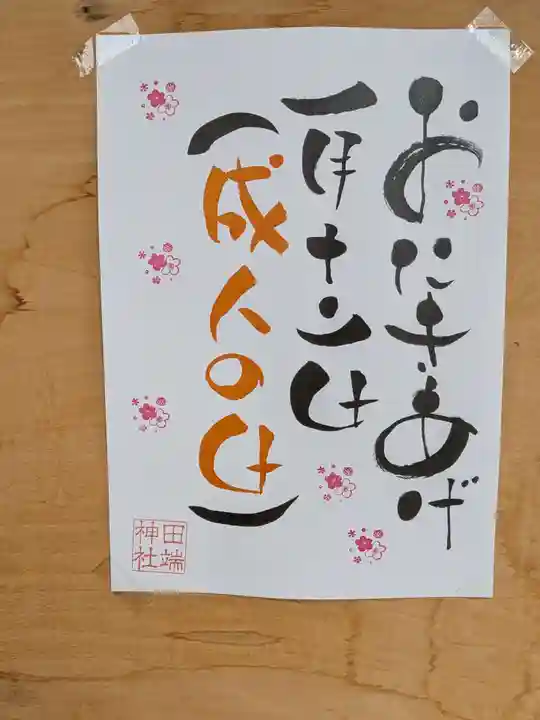 おたきあげ
一月十二日
(成人の日)
田端
神社